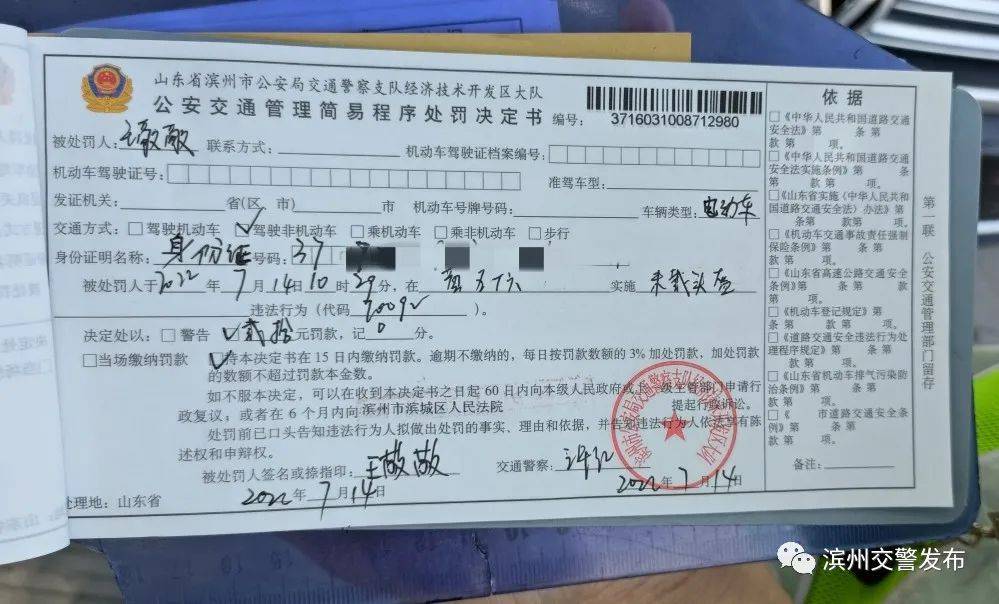 山东省滨州市公安局交通警察支队经济技术开发区大队
公安交通管理简易程序处罚决定书 编号: 3716031008712980
被处罚人: 王敬敬 联系方式: 机动车驾驶证档案编号:
机动车驾驶证号: 准驾车型:
发证机关: 省(区 市) 市 机动车号牌号码: 车辆类型: 电动车
交通方式: □驾驶机动车 ☑驾驶非机动车 □乘机动车 □乘非机动车 □步行
身份证明名称: 身份证 号码: 37
被处罚人于2022年7月14日10时29分,在 实施 未戴头盔
违法行为(代码 )。
决定处以: □警告 ☑贰拾元罚款,记0分。
□当场缴纳罚款 ☑持本决定书在15日内缴纳罚款。逾期不缴纳的,每日按罚款数额的3%加处罚款,加处罚款
的数额不超过罚款本金数。
如不服本决定,可以在收到本决定书之日起60日内向本级人民政府或上一级主管部门申请行
政复议;或者在6个月内向滨州市滨城区人民法院 提起行政诉讼。
处罚前已口头告知违法行为人拟做出处罚的事实、理由和依据,并告知违法行为人依法享有陈
述权和申辩权。
被处罚人签名或捺指印: 王敬敬 交通警察:
处理地: 山东省 2022年7月14日 2022年7月14日
依据
□《中华人民共和国道路交通
安全法》第 条 第
款 第 项。
□《中华人民共和国道路交通
安全法实施条例》第 条
第 款 第 项。
□《山东省实施〈中华人民共和
国道路交通安全法〉办法》第
条 第 款第 项。
□《机动车交通事故责任强制
保险条例》第 条 第
款 第 项。
□《山东省高速公路交通安全
条例》第 条第 款第 项。
□《机动车登记规定》第
条 第 款 第 项。
□《道路交通安全违法行为处
理程序规定》第 条第 款
第 项。
□《山东省机动车排气污染防
治条例》第 条第 款第 项。
□《 市道路交通安全条
例》第 条第 款第 项。
备注:
第一联 公安交通管理部门留存
滨州交警发布